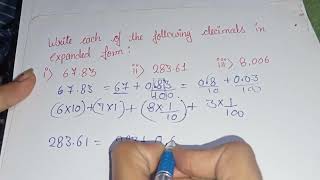 Write each of the following decimals in
expanded form:
i) 67.83 ii) 283.61 iii) 8.006
67.83 = 67 + 0.83 = 0.8 + 0.03
100 10 100
(6×10)+(7×1)+(8×1/10)+ 3×1/100
283.61 =